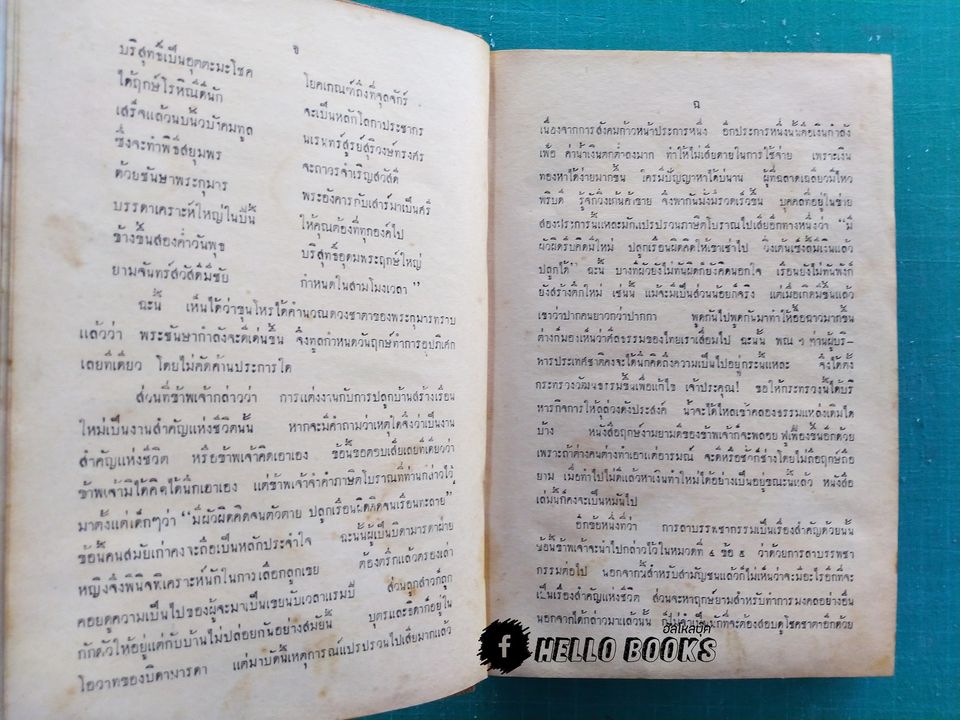 ช
บริสุทธิ์เป็นอุตตะมะโชค โยคเกณฑ์ถึงที่จุลจักร์
ได้ฤกษ์โรหิณีดีนัก จะเป็นหลักโลกาประชากร
เสร็จแล้วนบนิ้วบังคมทูล นเรนทร์สูรย์สุริวงษ์ทรงศร
ซึ่งจะทำพิธีสยุมพร จะถาวรจำเริญสวัสดี
ด้วยชันษาพระกุมาร พระอังคารกับเสาร์มาเป็นศรี
บรรดาเคราะห์ใหญ่ในปีนี้ ให้คุณต้องที่ทุกองค์ไป
ข้างขึ้นสองค่ำวันพุธ บริสุทธิ์อุดมพระฤกษ์ใหญ่
ยามจันทร์สวัสดีมีชัย กำหนดในสามโมงเวลา ”
ฉะนี้ เห็นได้ว่าขุนโหรได้คำนวณดวงชาตาของพระกุมารทราบ
แล้วว่า พระชันษากำลังจะดีเด่นขึ้น จึงทูลกำหนดวันฤกษ์ทำการอุปภิเศก
เลยทีเดียว โดยไม่คัดค้านประการใด
ส่วนที่ข้าพเจ้ากล่าวว่า การแต่งงานกับการปลูกบ้านสร้างเรือน
ใหม่เป็นงานสำคัญแห่งชีวิตนั้น หากจะมีคำถามว่าเหตุใดจึงว่าเป็นงาน
สำคัญแห่งชีวิต หรือข้าพเจ้าคิดเอาเอง ข้อนี้ขอตอบเสียเลยทีเดียวว่า
ข้าพเจ้ามิได้คิดได้นึกเอาเอง แต่ข้าพเจ้าจำคำภาษิตโบราณที่ท่านกล่าวไว้
มาตั้งแต่เด็กๆว่า “มีผัวผิดคิดจนตัวตาย ปลูกเรือนผิดคิดจนเรือนทะลาย”
ข้อนี้คนสมัยเก่าคงจะถือเป็นหลักประจำใจ ฉะนั้นผู้เป็นบิดามารดาฝ่าย
หญิงจึงพินิจพิเคราะห์นักในการเลือกลูกเขย ต้องตรึกแล้วตรองเล่า
คอยดูความเป็นไปของผู้จะมาเป็นเขยนับเวลาแรมปี ส่วนลูกสาวก็ถูก
กักตัวให้อยู่แต่กับบ้านไม่ปล่อยกันอย่างสมัยนี้ บุตรและธิดาก็อยู่ใน
โอวาทของบิดามารดา แต่มาบัดนี้เหตุการณ์แปรปรวนไปเสียมากแล้ว
ฉ
เนื่องจากการสังคมก้าวหน้าประการหนึ่ง อีกประการหนึ่งนั้นคือเงินกำลัง
เฟ้อ ค่าน้ำเงินตกต่ำลงมาก ทำให้ไม่เสียดายในการใช้จ่าย เพราะเงิน
ทองหาได้ง่ายมากขึ้น ใครมีปัญญาหาได้บ่นาน ผู้ที่ฉลาดเฉลียวมีไหว
พริบดี รู้จักวิ่งเก้นค้าขาย จึงพากันมั่งมีรวดเร็วขึ้น บุคคลที่อยู่ในข่าย
สองประการนี้แหละมักแปรปรวนภาษิตโบราณไปเสียอีกทางหนึ่งว่า “มี
ผัวผิดรีบคิดมีใหม่ ปลูกเรือนผิดคิดให้เขาเช่าไป วิ่งเต้นเซ็งลี้มีเงินแล้ว
ปลูกได้” ฉะนี้ บางทีผัวยังไม่ทันผิดก็ยังคิดนอกใจ เรือนยังไม่ทันพังก็
ยังสร้างตึกใหม่ เช่นนี้ แม้จะมีเป็นส่วนน้อยก็จริง แต่เมื่อเกิดมีขึ้นแล้ว
เขาว่าปากคนยาวกว่าปากกา พูดกันไปพูดกันมาทำให้อื้อฉาวมากขึ้น
ต่างก็มองเห็นว่าศีลธรรมของไทยเราเสื่อมไป ฉะนั้น พณ ฯ ท่านผู้บริ-
หารประเทศชาติคงจะได้นึกคิดถึงความเป็นไปอยู่กระนี้แหละ จึงได้ตั้ง
กระทรวงวัฒนธรรมขึ้นเพื่อแก้ไข เจ้าประคุณ! ขอให้กระทรวงนี้ได้บริ
หารกิจการให้ลุล่วงดังประสงค์ น้ำจะได้ไหลเข้าคลองธรรมแหล่งเดิมได้
บ้าง หนังสือฤกษ์งามยามดีของข้าพเจ้าก็จะพลอยฟูเฟื่องขึ้นอีกด้วย
เพราะถ้าต่างคนต่างทำเอาแต่อารมณ์ จะดีหรือชั่วก็ช่างโดยไม่ถือฤกษ์ถือ
ยาม เมื่อทำไปไม่ดีแล้วหาเงินทำใหม่ได้อย่างเป็นอยู่ขณะนี้แล้ว หนังสือ
เล่มนี้ก็คงจะเป็นหมันไป
อีกข้อหนึ่งที่ว่า การลาบรรพชากรรมเป็นเรื่องสำคัญด้วยนั้น
ข้อนี้ข้าพเจ้าจะนำไปกล่าวไว้ในหมวดที่ ๔ ข้อ ๕ ว่าด้วยการลาบรรพชา
กรรมต่อไป นอกจากนี้สำหรับสามัญชนแล้วก็ไม่เห็นว่าจะมีอะไรอีกที่จะ
เป็นเรื่องสำคัญแห่งชีวิต ส่วนจะหาฤกษ์ยามสำหรับทำการมงคลอย่างอื่น
นอกจากได้กล่าวมาแล้วนั้น ก็ไม่จำเป็นที่จะต้องสอบดูโชคชาตาอีกด้วย
ฮัลโหลบุ๊ค
HELLO BOOKS